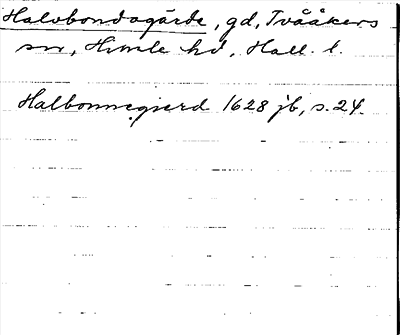 Halvbondagärde, gd, Tvååkers
sn, Himle hd, Hall. l.
Halbonnegierd 1628 jb, s. 24.